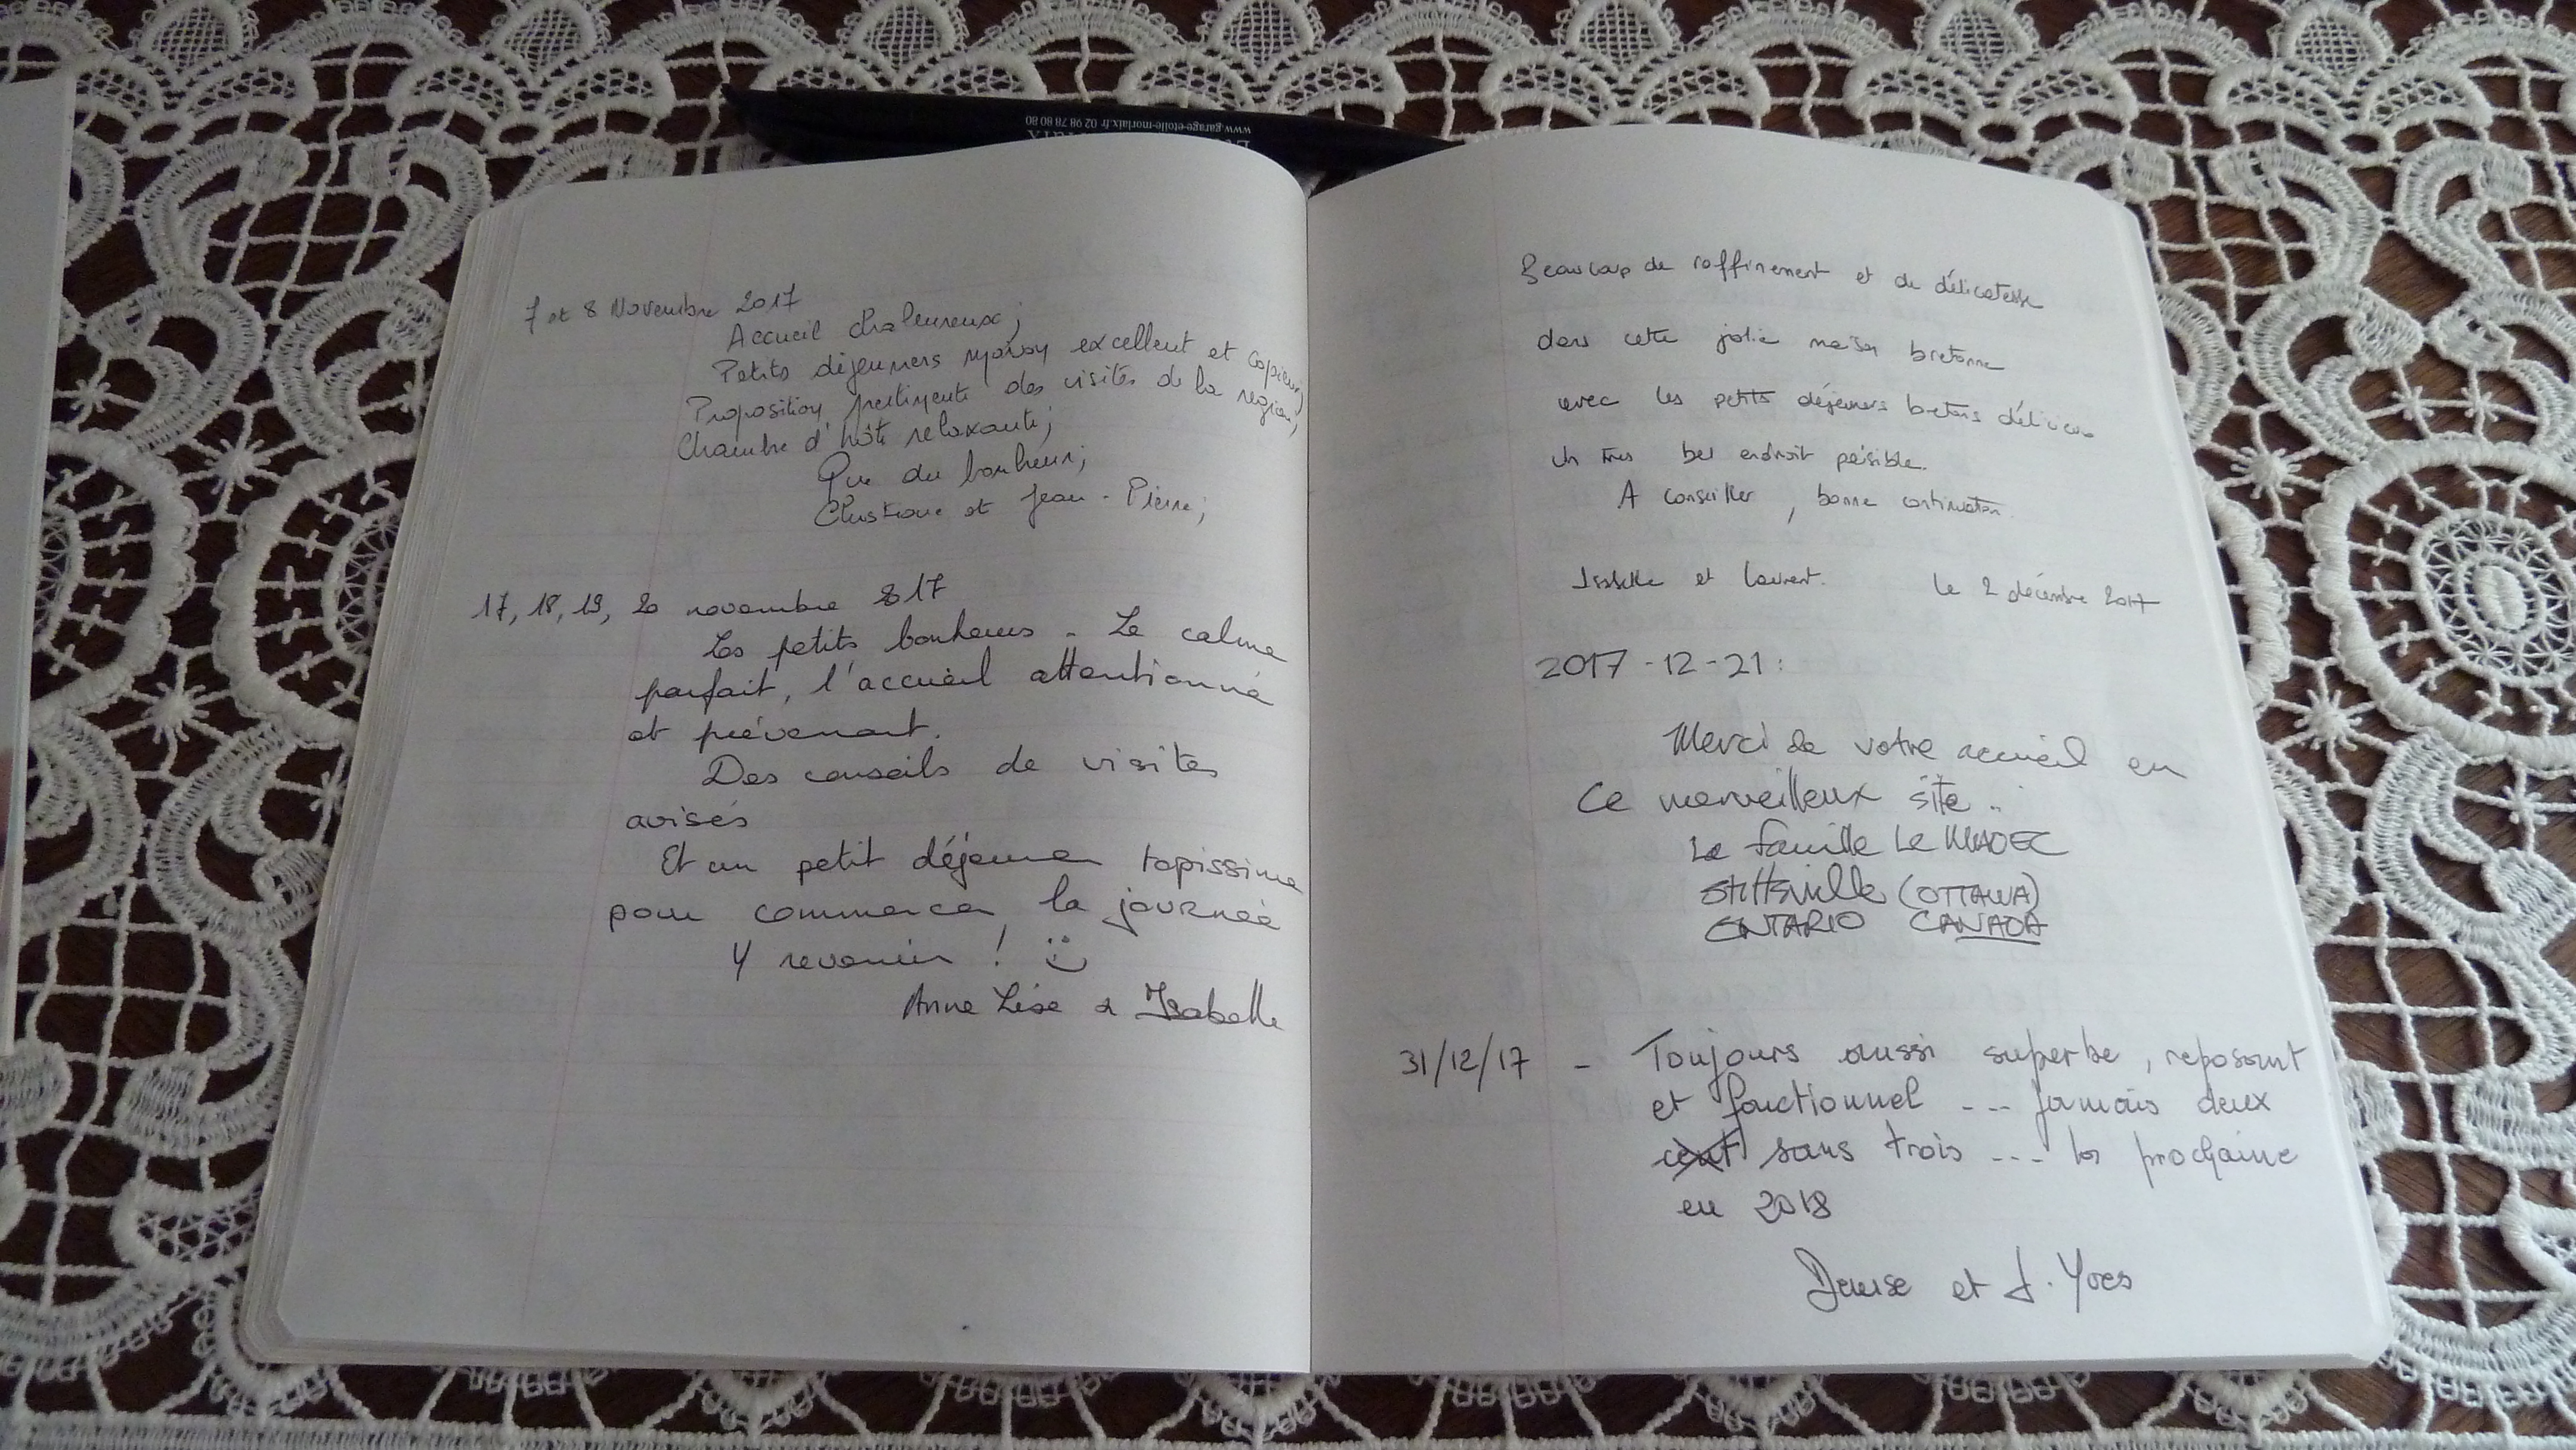 www.garage-etoile-morlaix.fr 02 98 78 80 80
7 et 8 Novembre 2017
Accueil chaleureux;
Petits déjeuners maison excellent et copieux;
Proposition pertinente des visites de la région;
Chambre d'hôte relaxante;
Que du bonheur;
et Jean-Pierre;
17, 18, 19, 20 novembre 2017
Les petits bonheurs. Le calme
parfait, l'accueil attentionné
et prévenant.
Des conseils de visites
avisés
Et un petit déjeuner topissime
pour commencer la journée
Y revenir ! :)
Anne Lise & Isabelle
Beaucoup de raffinement et de délicatesse
dans cette jolie maison bretonne
avec les petits déjeuners bretons délicieux
un très bel endroit paisible.
A conseiller, bonne continuation.
Isabelle et Laurent. Le 2 décembre 2017
2017-12-21:
Merci de votre accueil en
ce merveilleux site..
La famille Le MADEC
Stittsville (OTTAWA)
ONTARIO CANADA
31/12/17 - Toujours aussi superbe, reposant
et fonctionnel --- jamais deux
sans trois --- la prochaine
en 2018
Denise et J. Yves